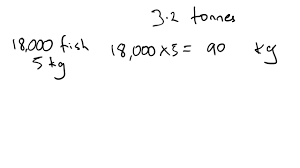 3.2 tonnes
18,000 fish 18,000 x 5 = 90 kg
5 kg